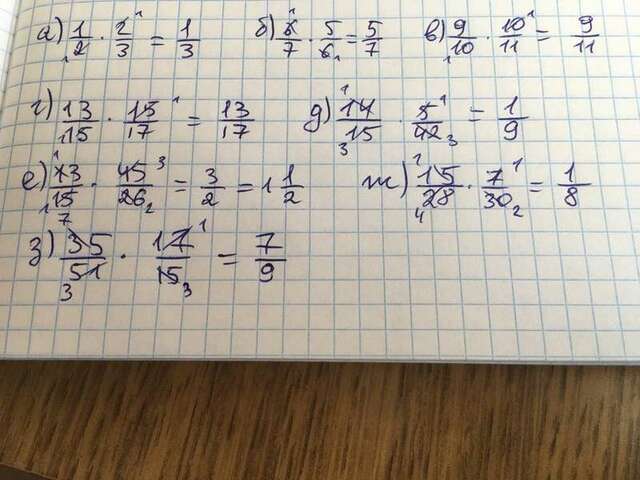 а) 1/2 · 2/3 = 1/3 б) 6/7 · 5/6 = 5/7 в) 9/10 · 10/11 = 9/11
г) 13/15 · 15/17 = 13/17 д) 14/15 · 5/42 = 1/9
е) 13/15 · 45/26 = 3/2 = 1 1/2 ж) 15/28 · 7/30 = 1/8
з) 35/51 · 17/15 = 7/9